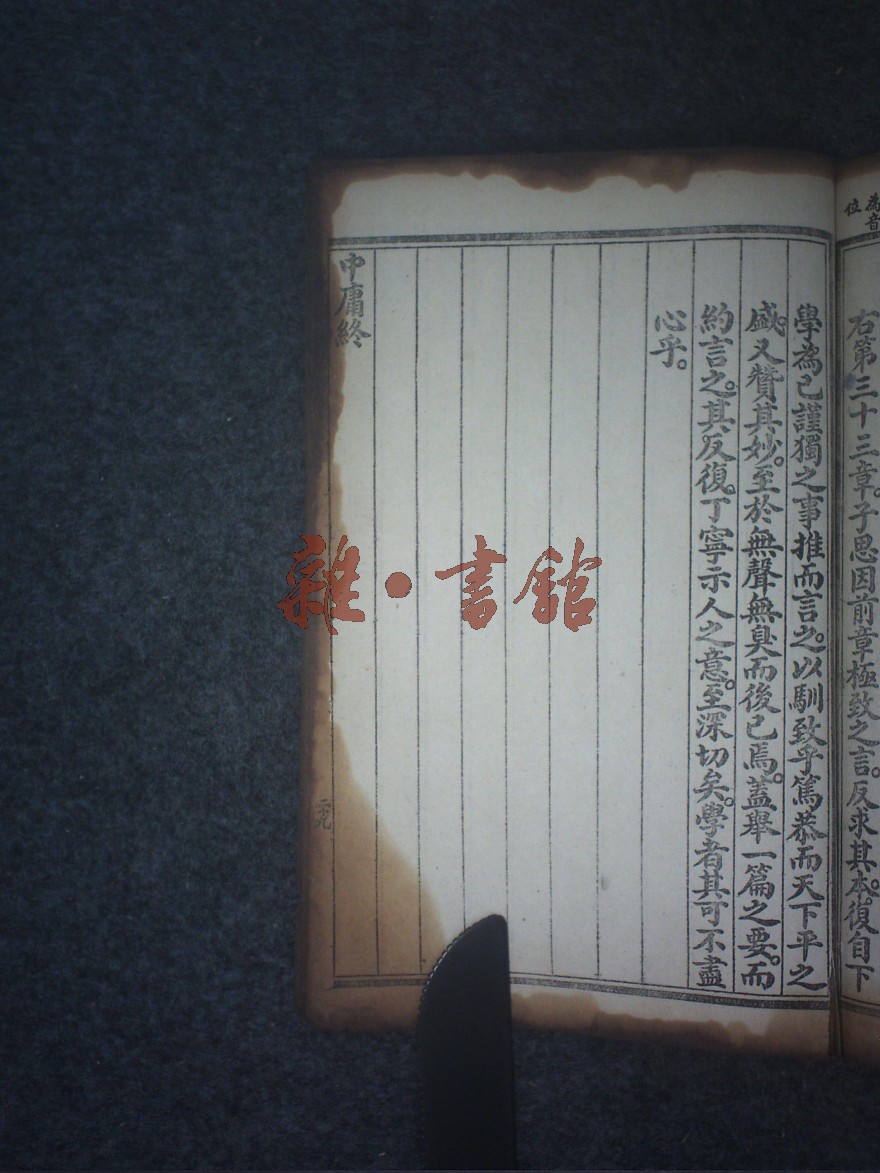 為音
位
右第三十三章。子思因前章極致之言。反求其本。復自下
學為己謹獨之事推而言之。以馴致乎篤恭而天下平之
盛。又贊其妙。至於無聲無臭而後已焉。蓋舉一篇之要。而
約言之。其反復。丁寧示人之意。至深切矣。學者其可不盡
心乎。
中庸終
二九
雜·書館